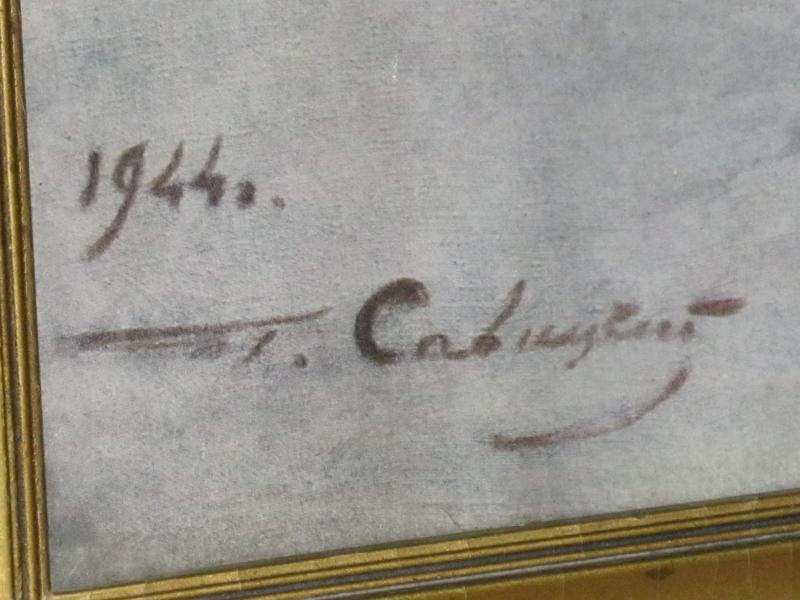 1944г.
Г. Савицкий